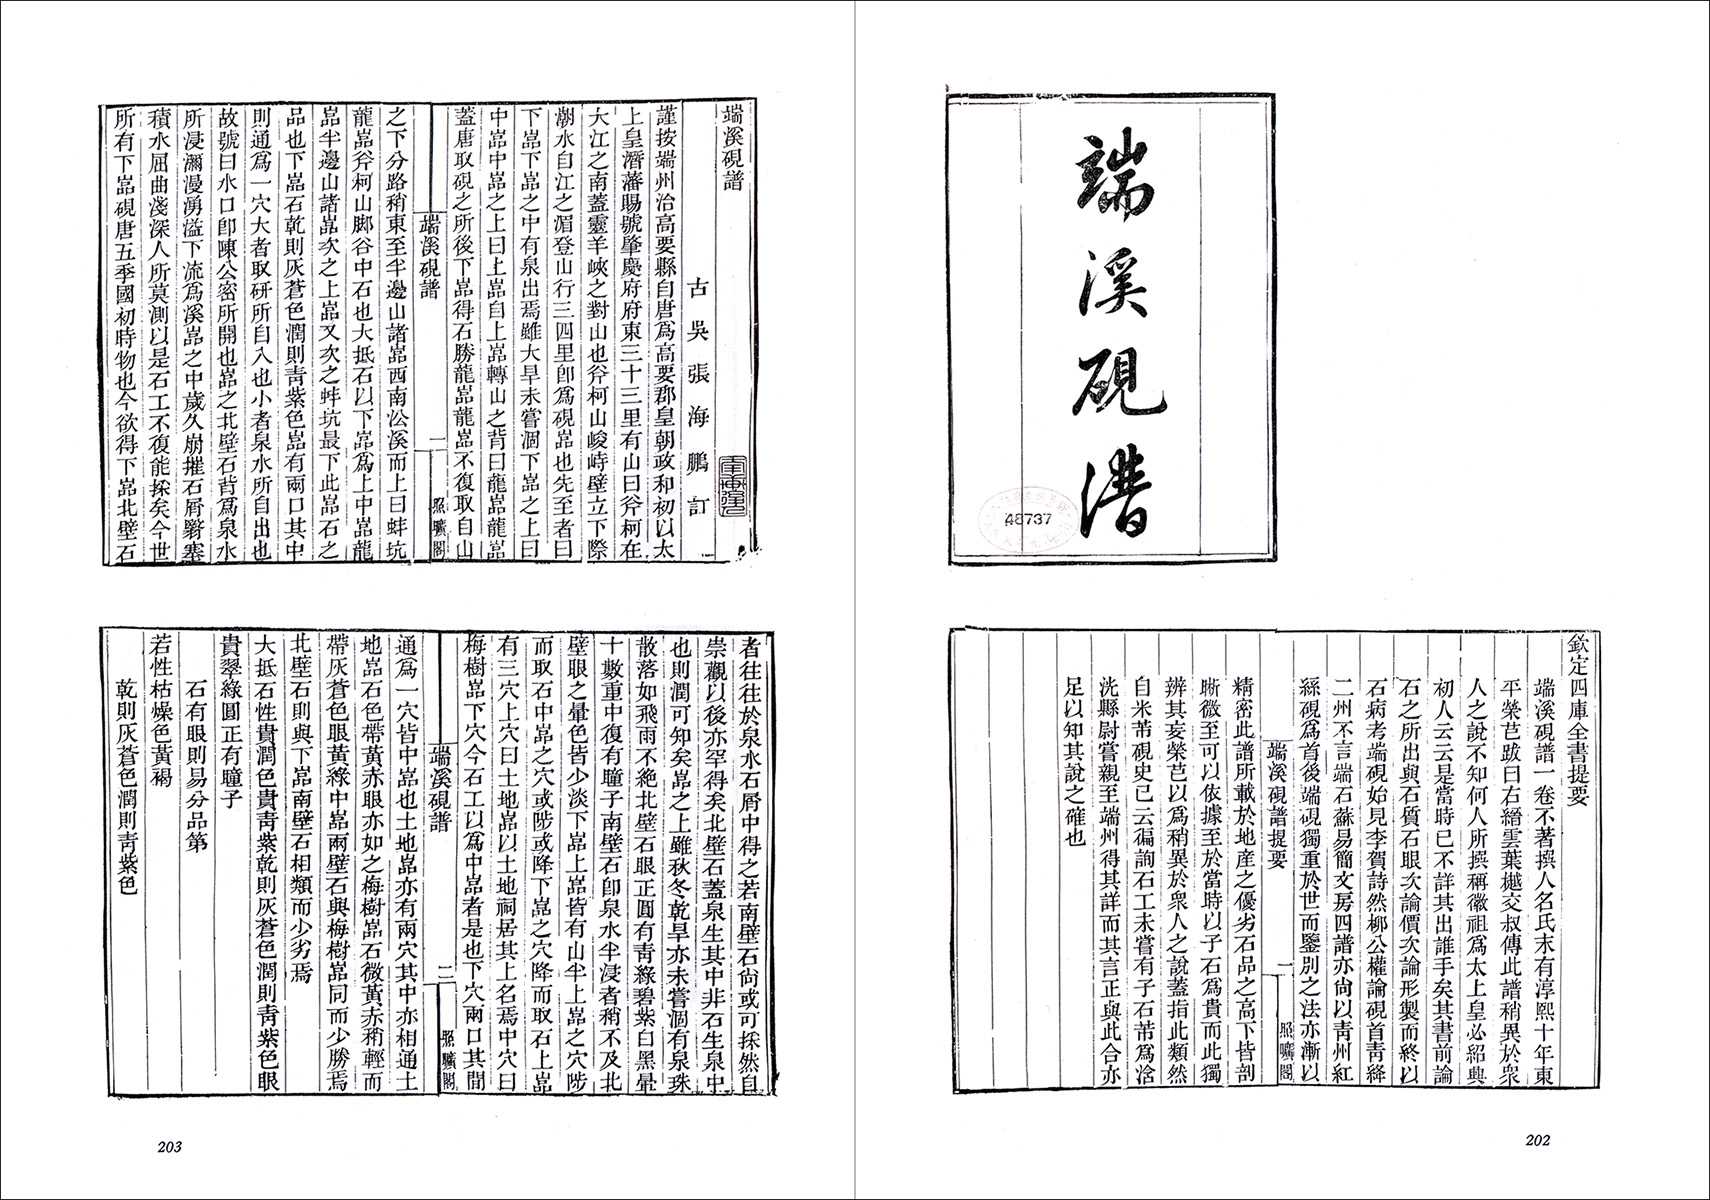 端溪硯譜
48737
欽定四庫全書提要
端溪硯譜一卷不著撰人名氏末有淳熙十年東
平榮芑跋曰右縉雲葉樾交叔傳此譜稍異於衆
人之說不知何人所撰稱徽祖爲太上皇必紹興
初人云云是當時已不詳其出誰手矣其書前論
石之所出與石質石眼次論價次論形製而終以
石病考端硯始見李賀詩然柳公權論硯首青絳
二州不言端石蘇易簡文房四譜亦尙以青州紅
絲硯爲首後端硯獨重於世而鑒別之法亦漸以
端溪硯譜提要
一
照曠閣
精密此譜所載於地産之優劣石品之高下皆剖
晰微至可以依據至於當時以子石爲貴而此獨
辨其妄榮芑以爲稍異於衆人之說蓋指此類然
自米芾硯史已云徧詢石工未嘗有子石芾爲浛
洸縣尉嘗親至端州得其詳而其言正與此合亦
足以知其說之確也
202
端溪硯譜
古吳張海鵬訂
謹按端州治高要縣自唐爲高要郡皇朝政和初以太
上皇潛藩賜號肇慶府府東三十三里有山曰斧柯在
大江之南蓋靈羊峽之對山也斧柯山峻峙壁立下際
潮水自江之湄登山行三四里卽爲硯嵓也先至者曰
下嵓下嵓之中有泉出焉雖大旱未嘗涸下嵓之上曰
中嵓中嵓之上曰上嵓自上嵓轉山之背曰龍嵓龍嵓
蓋唐取硯之所後下嵓得石勝龍嵓龍嵓不復取自山
端溪硯譜
一
照曠閣
之下分路稍東至半邊山諸嵓西南沿溪而上曰蚌坑
龍嵓斧柯山脚谷中石也大抵石以下嵓爲上中嵓龍
嵓半邊山諸嵓次之上嵓又次之蚌坑最下此嵓石之
品也下嵓石乾則灰蒼色潤則青紫色嵓有兩口其中
則通爲一穴大者取研所自入也小者泉水所自出也
故號曰水口卽陳公密所開也嵓之北壁石背爲泉水
所浸瀰漫湧溢下流爲溪嵓之中歲久崩摧石屑翳塞
積水屈曲淺深人所莫測以是石工不復能採矣今世
所有下嵓硯唐五季國初時物也今欲得下嵓北壁石
者往往於泉水石屑中得之若南壁石尙或可採然自
崇觀以後亦罕得矣北壁石蓋泉生其中非石生泉中
也則潤可知矣嵓之上雖秋冬乾旱亦未嘗涸有泉珠
散落如飛雨不絶北壁石眼正圓有青綠碧紫白黑暈
十數重中復有瞳子南壁石卽泉水半浸者稍不及北
壁眼之暈色皆少淡下嵓上嵓皆有山半上嵓之穴陟
而取石中嵓之穴或陟或降下嵓之穴降而取石上嵓
有三穴上穴曰土地嵓以土地祠居其上名焉中穴曰
梅樹嵓下穴今石工以爲中嵓者是也下穴兩口其間
端溪硯譜
二
照曠閣
通爲一穴皆中嵓也土地嵓亦有兩穴其中亦相通土
地嵓石色帶黃赤眼亦如之梅樹嵓石微黃赤稍輕而
帶灰蒼色眼黃綠中嵓兩壁石與梅樹嵓同而少勝焉
北壁石則與下嵓南壁石相類而少劣焉
大抵石性貴潤色貴青紫乾則灰蒼色潤則青紫色眼
貴翠綠圓正有瞳子
石有眼則易分品第
若性枯燥色黃褐
乾則灰蒼色潤則青紫色
203